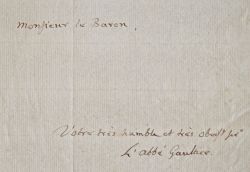 Monsieur le Baron,
Votre très humble et très obeist
L'abbé Gaultier.